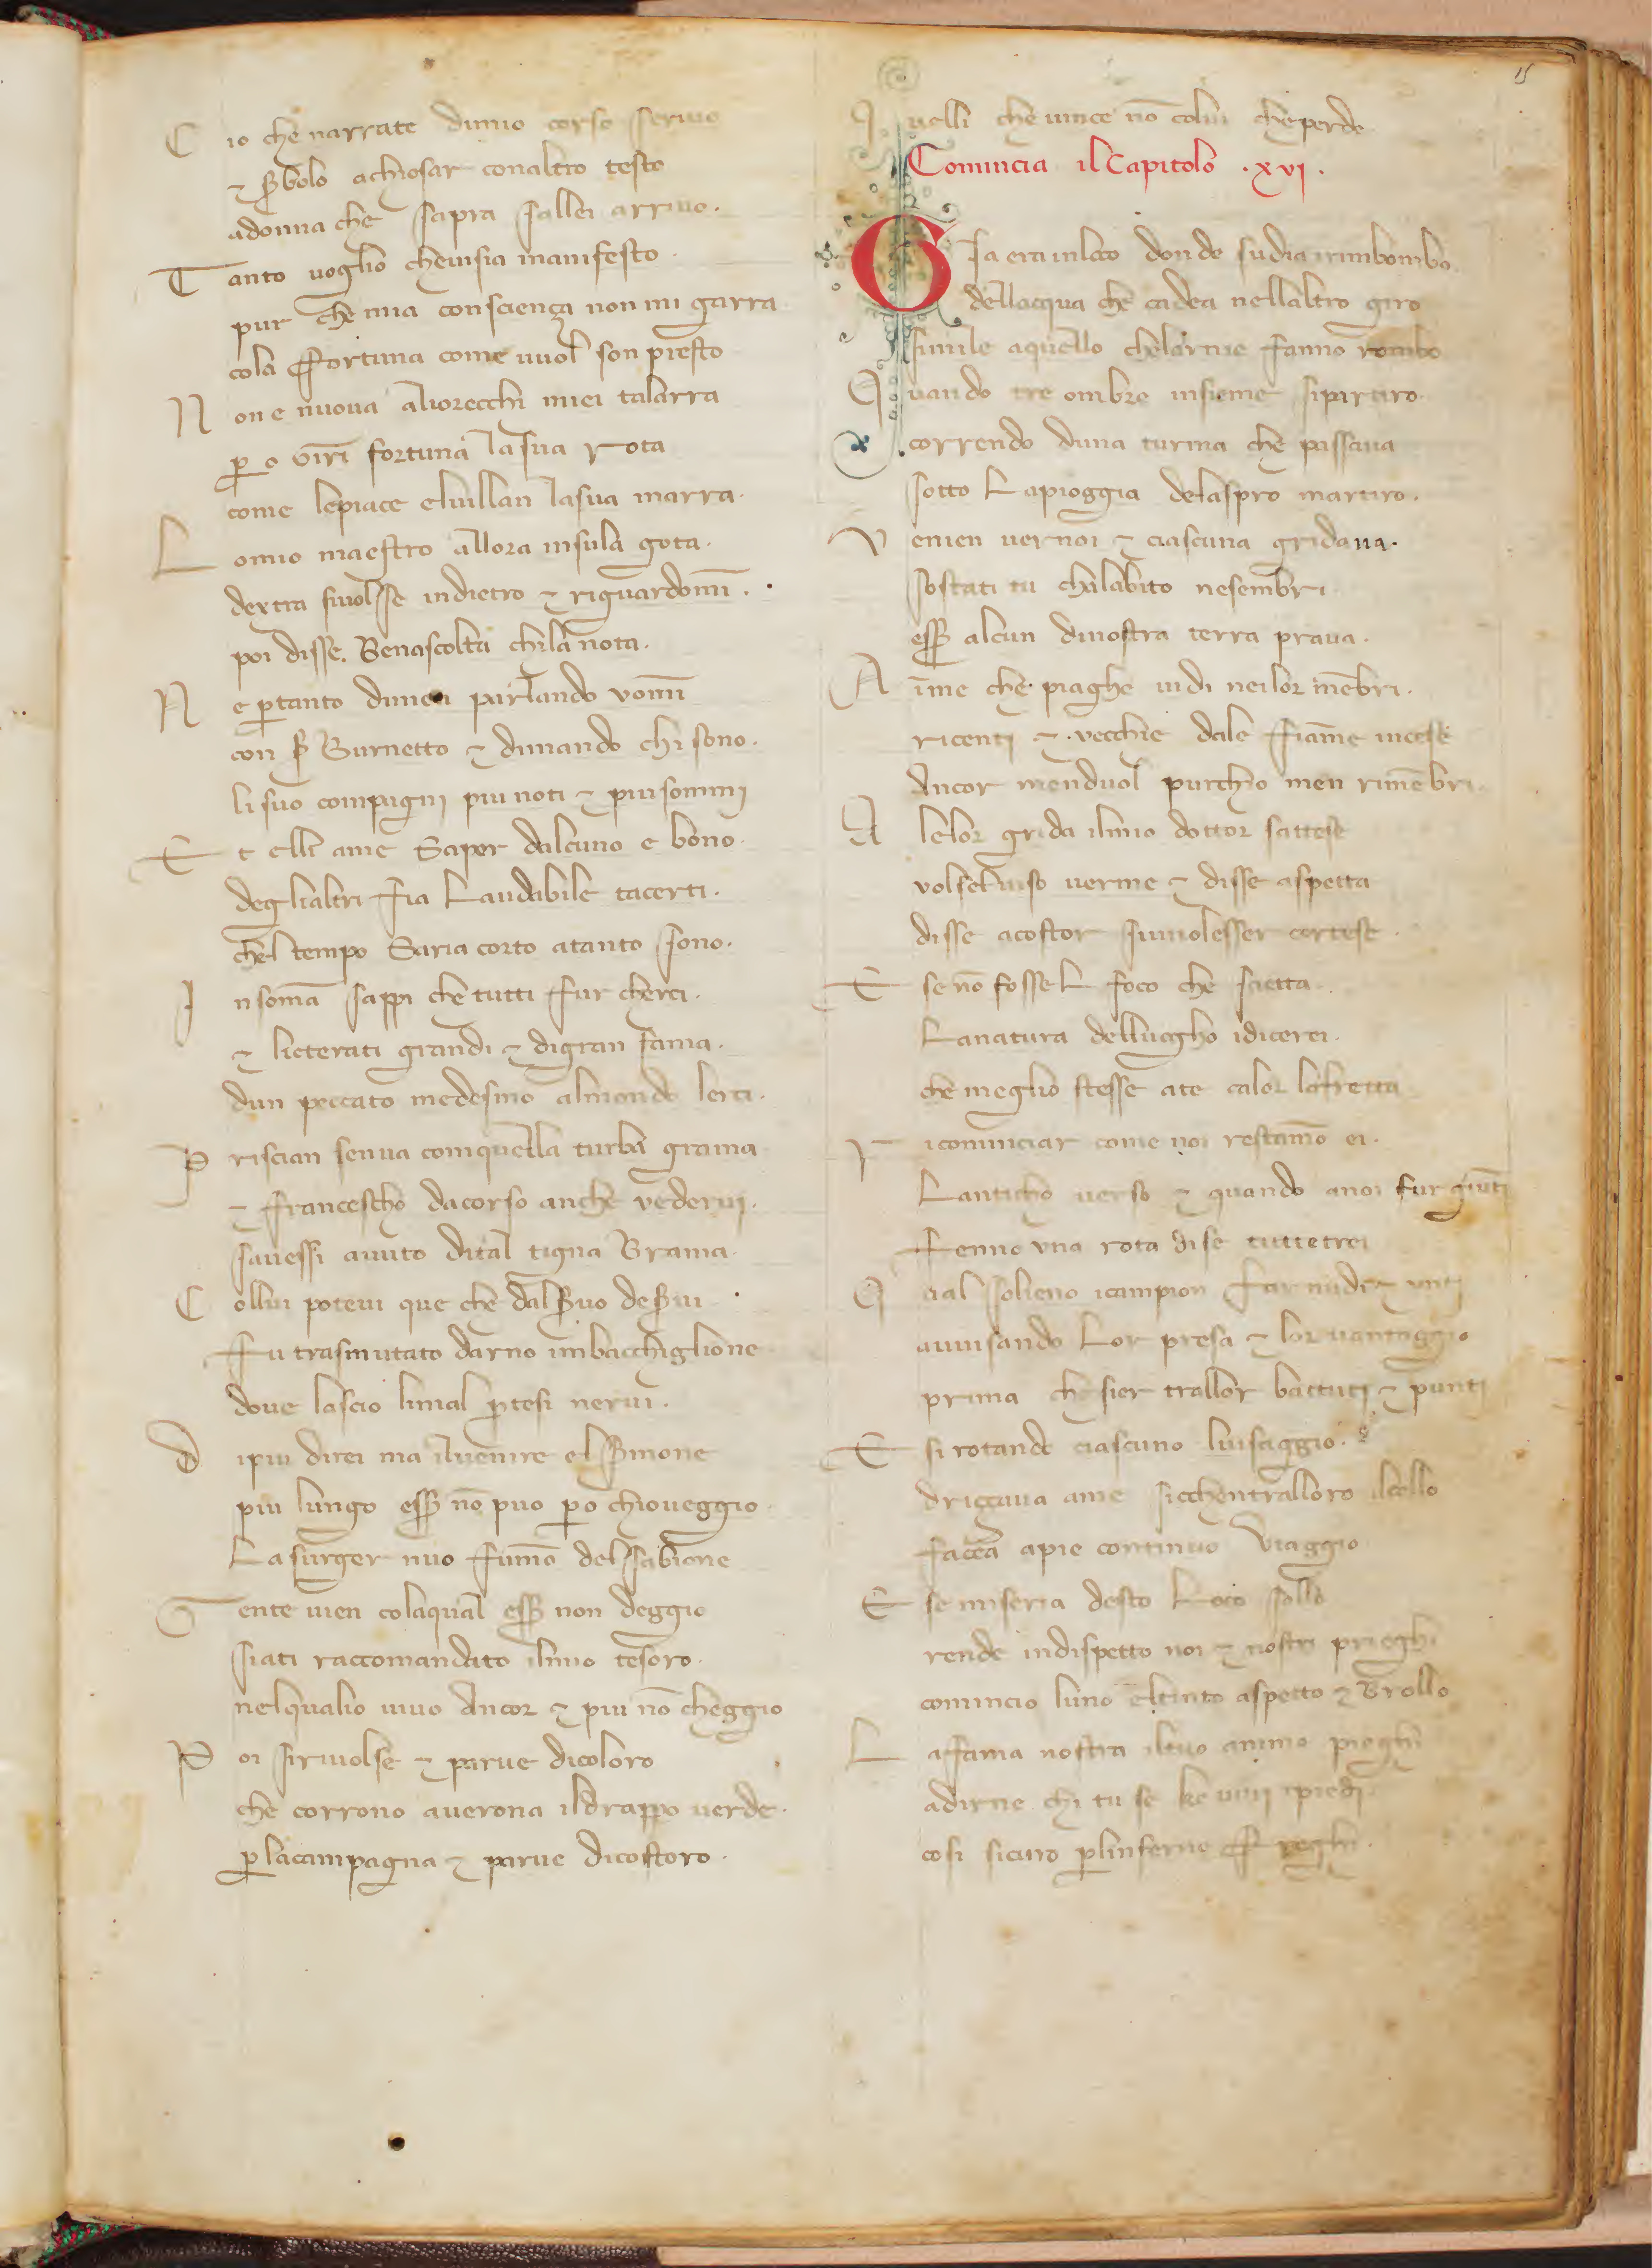 15
C io che narrate dimio corso scriuo
⁊ ẜbolo achiosar conaltro testo
adonna che sapra sallei arriuo.
T anto uoglio cheuisia manifesto.
pur che mia conscienza non mi garra
cola Fortuna come uuol son presto
N on e nuoua aliorecchi miei talarra
ꝑ o Giri fortuna lasua rota
come lepiace eluillan lasua marra.
L omio maestro allora insula gota.
dextra siuolsse indietro ⁊ riguardomi.
poi disse. Benascolta chila nota.
N e ꝑtanto dimen parlando vomi
con ẜ Burnetto ⁊ dimando chi sono.
lisuo compagni piu noti ⁊ piusommi
E t elli ame Saper dalcuno e bono.
deglialtri Fia Laudabile tacerti.
chel tempo Saria corto atanto sono.
I nsomā sappi che tutti fur cherci.
⁊ licterati grandi ⁊ digran fama.
dun peccato medesmo almondo lerci.
P riscian senua comquella turba grama
⁊ Francescho dacorso anche vederui.
sauessi auuto dital tigna Brama.
C ollui poteui que che dalẜuo deẜui.
Fu trasmutato darno imbacchiglione
doue lascio limal ꝓtesi nerui.
D ipiu direi ma iluenire elẜmone
piu lungo esẜ nō puo ꝑo chioueggio.
La surger nuo Fumo del sabione
G ente uien colaqual esẜ non deggio
siati raccomandato ilmio tesoro.
nelqualio uiuo Ancor ⁊ piu nō cheggio
P oi siriuolse ⁊ parue dicoloro
che corrono auerona ildrappo uerde.
ꝑ lacampagna ⁊ parue dicostoro.
Q uelli che uince nō colui cheperde
Comincia il Capitolo .xvj.
G Ia era inloco donde sudia irimbombo
dellacqua che cadea nellaltro giro
simile aquello chelarnie Fanno rombo
Q uando tre ombre insieme sipartiro.
correndo duna turma che passaua
sotto Lapioggia delaspro martiro.
V enien uernoi ⁊ ciascuna gridaua.
sostati tu chalabito nesembri
esẜ alcun dinostra terra praua.
A ime che piaghe uidi neilor mēbri.
ricenti ⁊ .vecchie dale Fiāme incese
Ancor menduol purchio men rimēbri.
A lelor grida ilmio dottor sattese
volselviso uerme ⁊ disse aspetta
disse acostor siuuolesser cortese.
E se nō fosseL foco che saetta.
Lanatura delluogho idicerei.
che meglio stesse ate calor lafretta
r icominciar come noi restāmo ei.
Lanticho uerso ⁊ quando anoi fur giūti
Fenno vna rota dise tuttetrei
Q ual solieno icampion Far nudi ⁊ vnti
auuisando Lor presa ⁊ lor uantaggio
prima che sier trallor battuti ⁊ punti
E si rotando ciascuno luisaggio.
drizzaua ame sicchentralloro ilcollo
faccea apie continuo viaggio
E se miseria desto Loco sollo
rende indispetto noi ⁊ nostri prieghi
comincio luno eltinto aspetto ⁊ Brollo
L afama nostra iltuo animo pieghi
adirne chi tu se ke viui ipiedi
cosi sicuro ꝑlinferno Freghi.